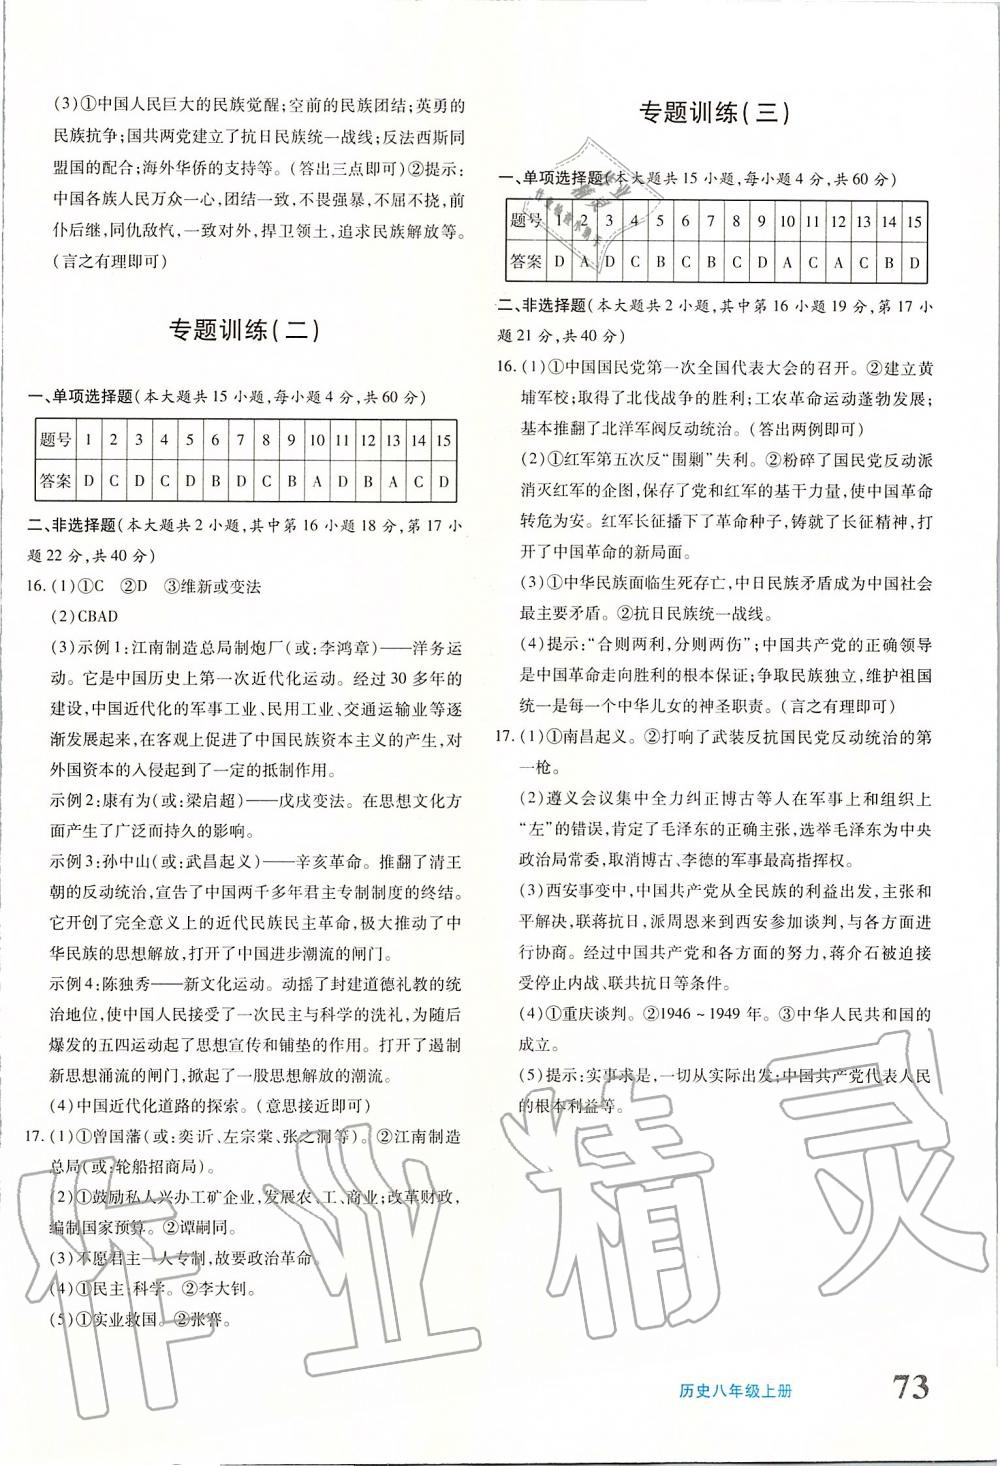 (3)①中国人民巨大的民族觉醒;空前的民族团结;英勇的
民族抗争;国共两党建立了抗日民族统一战线;反法西斯同
盟国的配合;海外华侨的支持等。(答出三点即可)②提示:
中国各族人民万众一心,团结一致,不畏强暴,不屈不挠,前
仆后继,同仇敌忾,一致对外,捍卫领土,追求民族解放等。
(言之有理即可)
专题训练(二)
一、单项选择题(本大题共15小题,每小题4分,共60分)
题号 1 2 3 4 5 6 7 8 9 10 11 12 13 14 15
答案 D C D C D B D C B A D B A C D
二、非选择题(本大题共2小题,其中第16小题18分,第17小
题22分,共40分)
16.(1)①C ②D ③维新或变法
(2)CBAD
(3)示例1:江南制造总局制炮厂(或:李鸿章)——洋务运
动。它是中国历史上第一次近代化运动。经过30多年的
建设,中国近代化的军事工业、民用工业、交通运输业等逐
渐发展起来,在客观上促进了中国民族资本主义的产生,对
外国资本的入侵起到了一定的抵制作用。
示例2:康有为(或:梁启超)——戊戌变法。在思想文化方
面产生了广泛而持久的影响。
示例3:孙中山(或:武昌起义)——辛亥革命。推翻了清王
朝的反动统治,宣告了中国两千多年君主专制制度的终结。
它开创了完全意义上的近代民族民主革命,极大推动了中
华民族的思想解放,打开了中国进步潮流的闸门。
示例4:陈独秀——新文化运动。动摇了封建道德礼教的统
治地位,使中国人民接受了一次民主与科学的洗礼,为随后
爆发的五四运动起了思想宣传和铺垫的作用。打开了遏制
新思想涌流的闸门,掀起了一股思想解放的潮流。
(4)中国近代化道路的探索。(意思接近即可)
17.(1)①曾国藩(或:奕䜣、左宗棠、张之洞等)。②江南制造
总局(或:轮船招商局)。
(2)①鼓励私人兴办工矿企业,发展农、工、商业;改革财政,
编制国家预算。②谭嗣同。
(3)不愿君主一人专制,故要政治革命。
(4)①民主;科学。②李大钊。
(5)①实业救国。②张謇。
专题训练(三)
一、单项选择题(本大题共15小题,每小题4分,共60分)
题号 1 2 3 4 5 6 7 8 9 10 11 12 13 14 15
答案 D A D C B C B C D A C A C B D
二、非选择题(本大题共2小题,其中第16小题19分,第17小
题21分,共40分)
16.(1)①中国国民党第一次全国代表大会的召开。②建立黄
埔军校;取得了北伐战争的胜利;工农革命运动蓬勃发展;
基本推翻了北洋军阀反动统治。(答出两例即可)
(2)①红军第五次反“围剿”失利。②粉碎了国民党反动派
消灭红军的企图,保存了党和红军的基干力量,使中国革命
转危为安。红军长征播下了革命种子,铸就了长征精神,打
开了中国革命的新局面。
(3)①中华民族面临生死存亡,中日民族矛盾成为中国社会
最主要矛盾。②抗日民族统一战线。
(4)提示:“合则两利,分则两伤”;中国共产党的正确领导
是中国革命走向胜利的根本保证;争取民族独立,维护祖国
统一是每一个中华儿女的神圣职责。(言之有理即可)
17.(1)①南昌起义。②打响了武装反抗国民党反动统治的第
一枪。
(2)遵义会议集中全力纠正博古等人在军事上和组织上
“左”的错误,肯定了毛泽东的正确主张,选举毛泽东为中央
政治局常委,取消博古、李德的军事最高指挥权。
(3)西安事变中,中国共产党从全民族的利益出发,主张和
平解决,联蒋抗日,派周恩来到西安参加谈判,与各方面进
行协商。经过中国共产党和各方面的努力,蒋介石被迫接
受停止内战、联共抗日等条件。
(4)①重庆谈判。②1946~1949年。③中华人民共和国的
成立。
(5)提示:实事求是,一切从实际出发;中国共产党代表人民
的根本利益等。
作业精灵
历史八年级上册
73